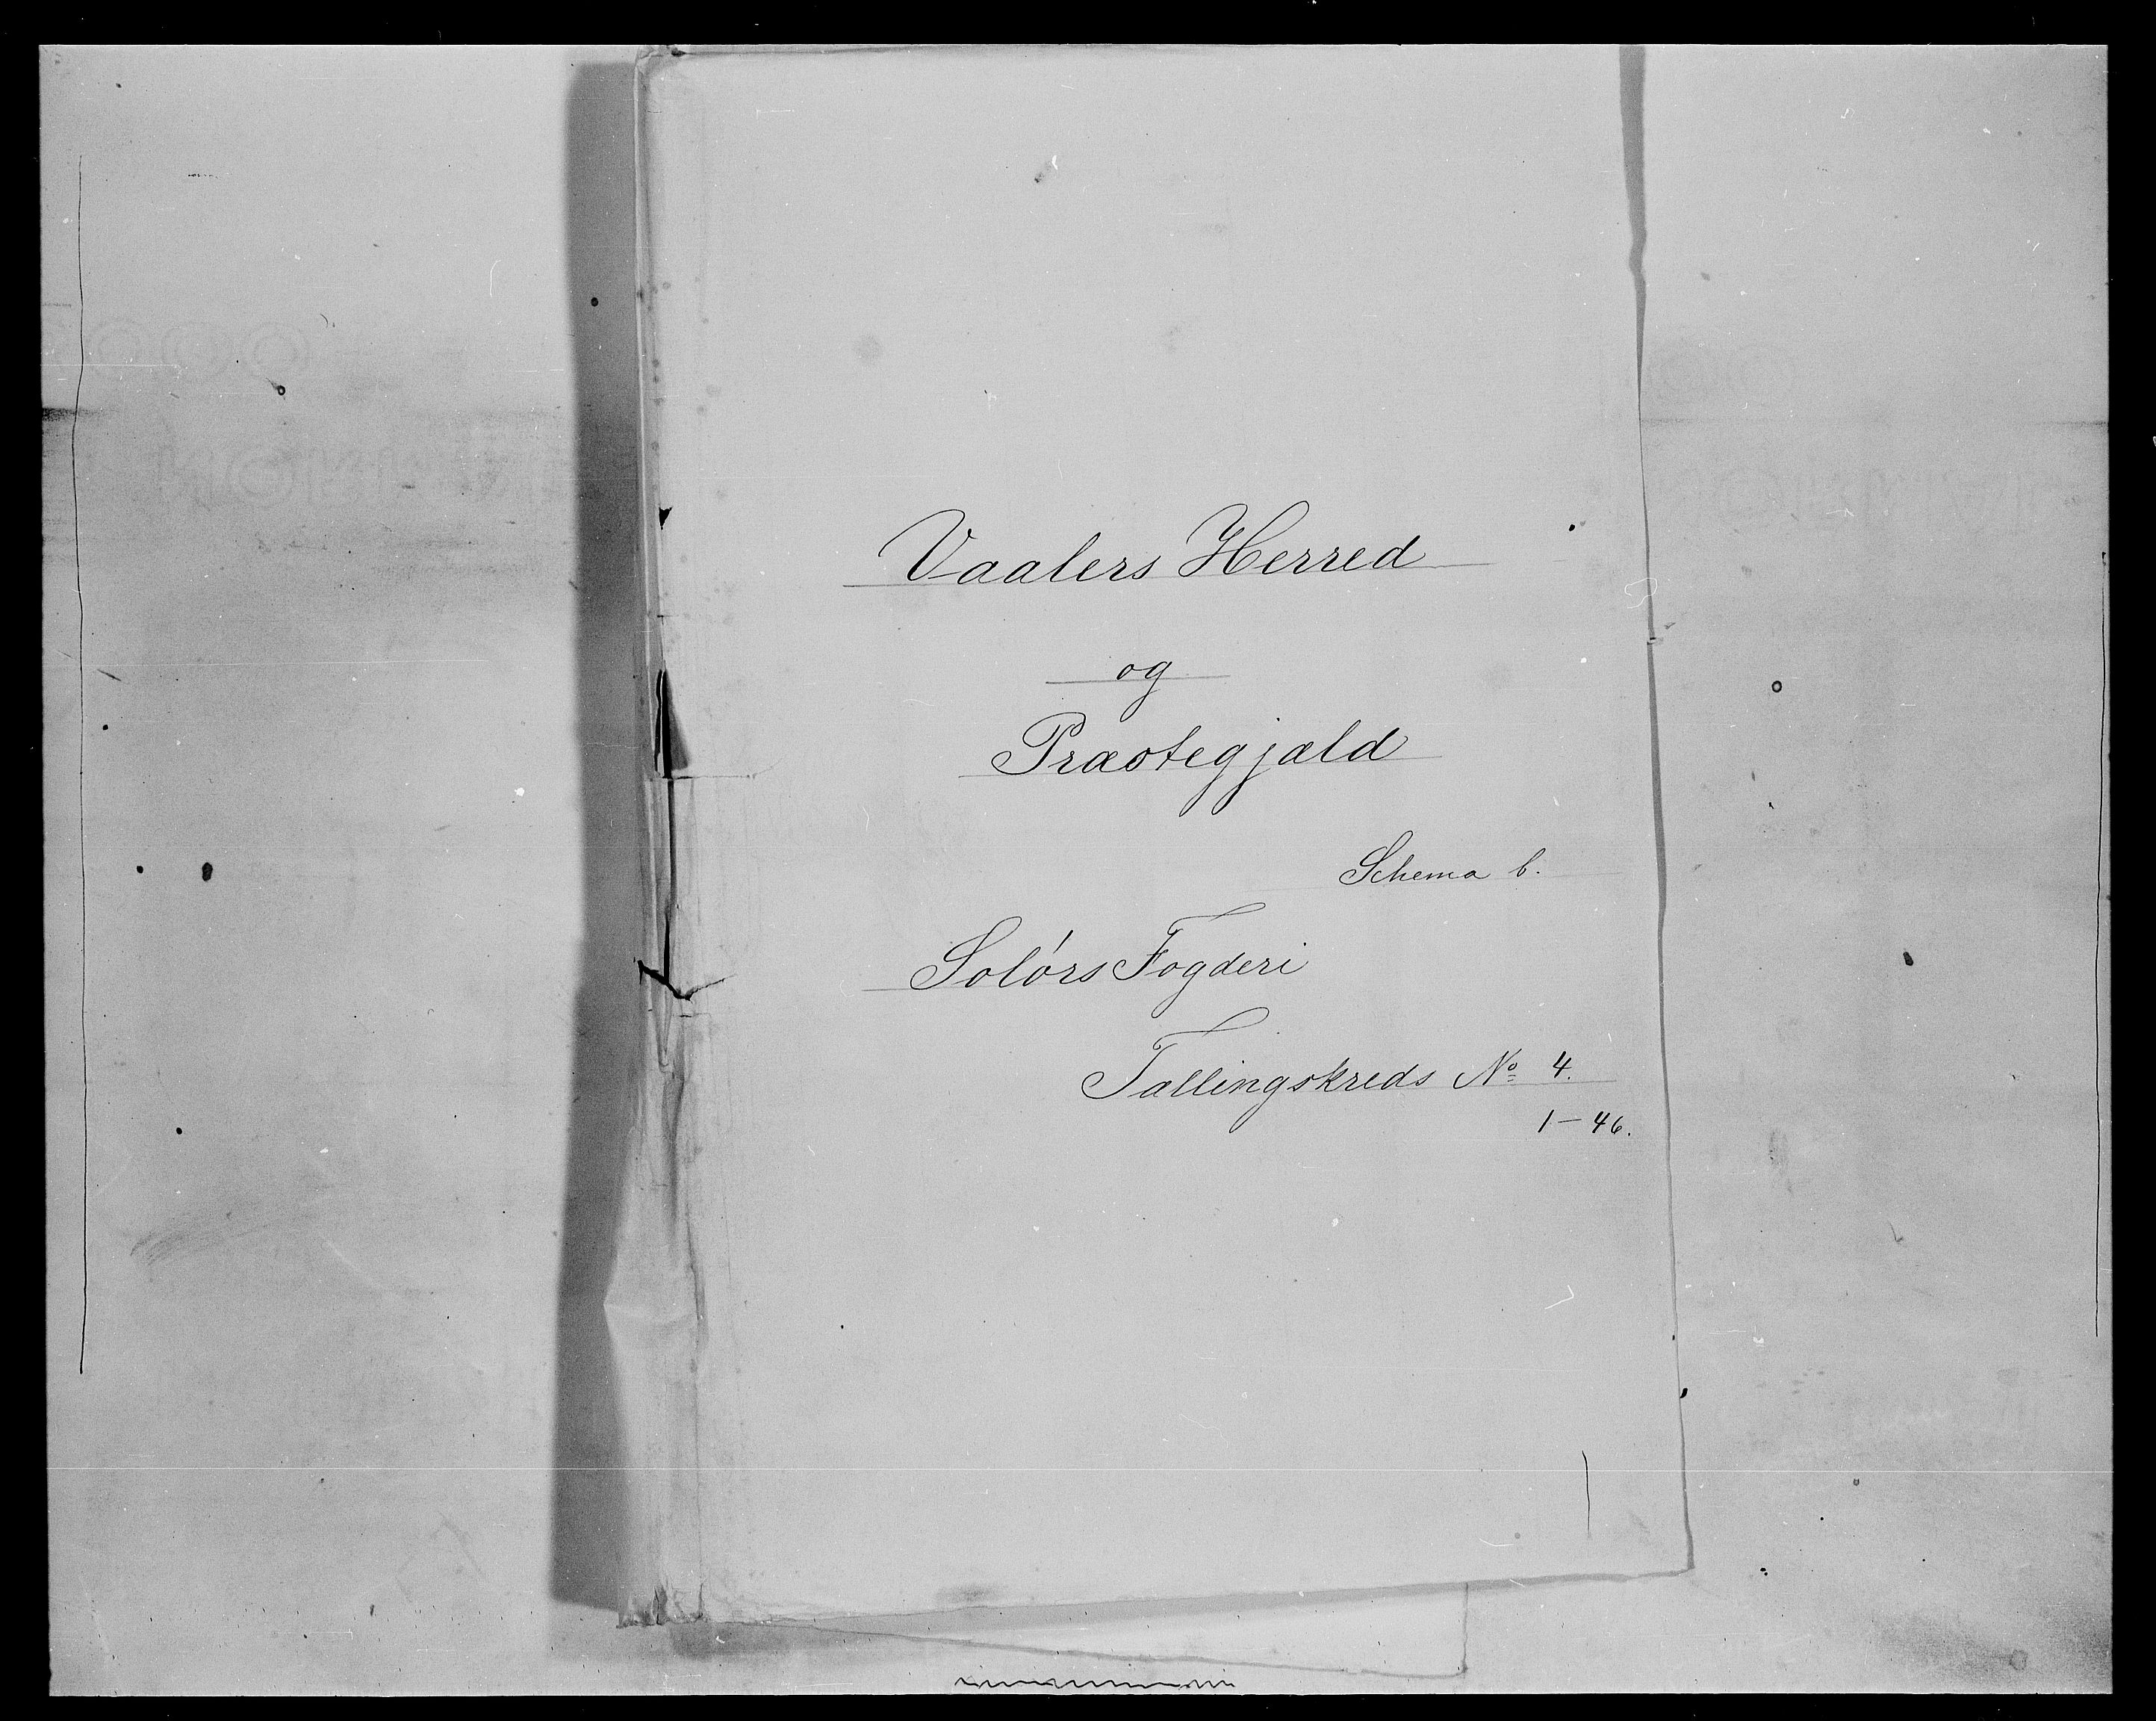 Vaalers Herred
og
Præstegjæld
Schema b.
Solórs Fogderi
Tællingskreds No 4.
1-46.